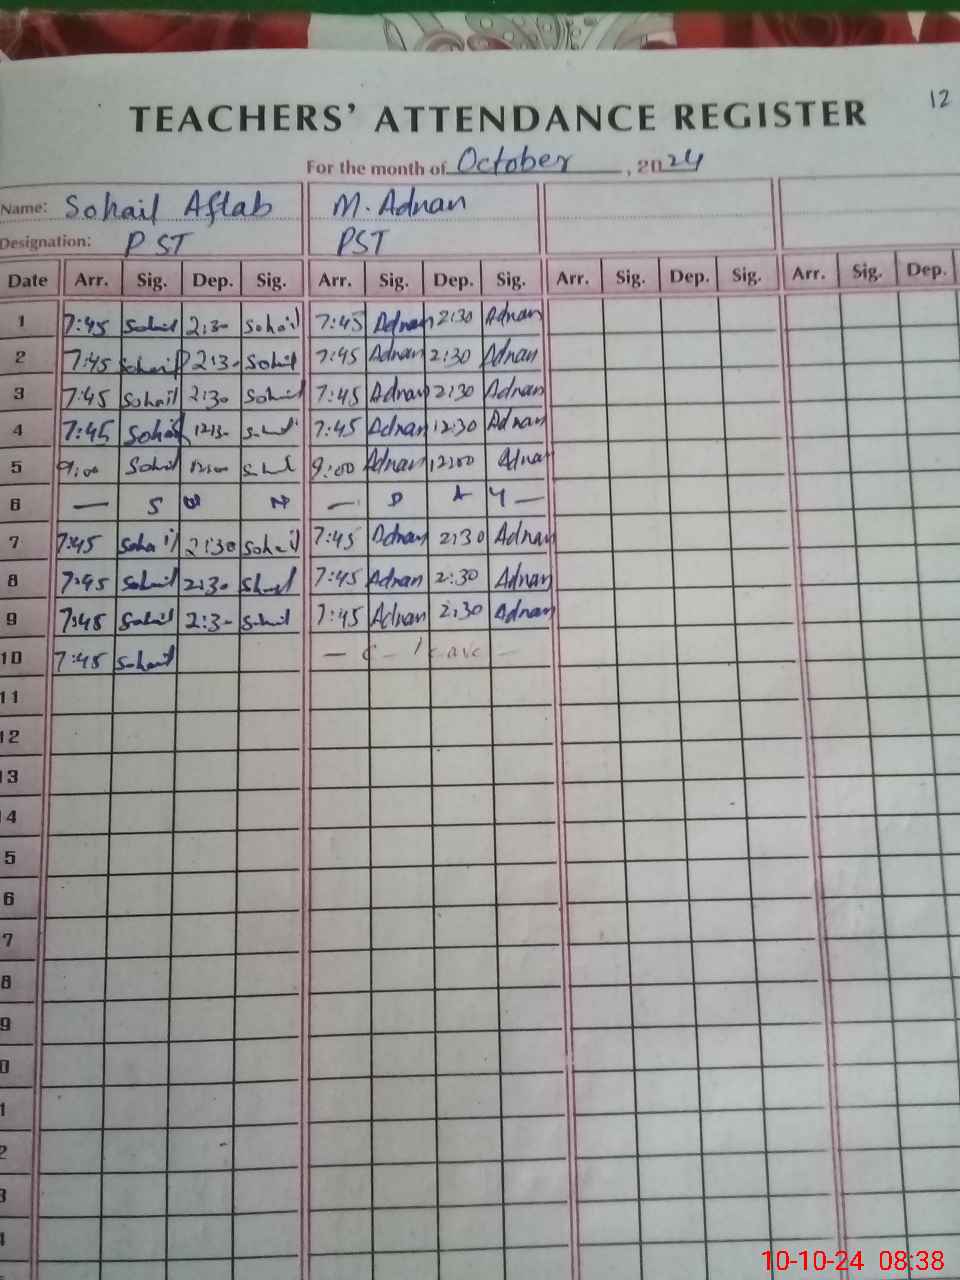 12
TEACHERS' ATTENDANCE REGISTER
For the month of October, 2024
Name: Sohail Aftab M. Adnan
Designation: PST PST
Date Arr. Sig. Dep. Sig. Arr. Sig. Dep. Sig. Arr. Sig. Dep. Sig. Arr. Sig. Dep.
1 7:45 Sohail 2:30 Sohail 7:45 Adnan 2:30 Adnan
2 7:45 Sohail 2:30 Sohail 7:45 Adnan 2:30 Adnan
3 7:45 Sohail 2:30 Sohail 7:45 Adnan 2:30 Adnan
4 7:45 Sohail 12:30 Sohail 7:45 Adnan 12:30 Adnan
5 9:00 Sohail 12:00 Sohail 9:00 Adnan 12:00 Adnan
6 — S U N — D A Y —
7 7:45 Sohail 2:30 Sohail 7:45 Adnan 2:30 Adnan
8 7:45 Sohail 2:30 Sohail 7:45 Adnan 2:30 Adnan
9 7:45 Sohail 2:30 Sohail 7:45 Adnan 2:30 Adnan
10 7:45 Sohail — C - leave —
11
12
13
14
5
6
7
8
9
0
1
2
3
4
10-10-24 08:38